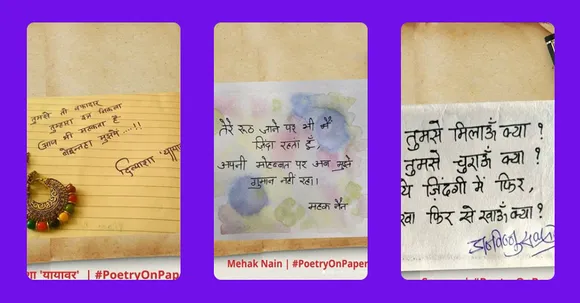 तुमसे तो वफादार
तुम्हारा इत्र निकला
आज भी महकता है
बेइन्तहा मुझमें.....!!
'यायावर'
शा 'यायावर' | #PoetryOnPap
तेरे रूठ जाने पर भी मैं
ज़िंदा रहता हूँ,
अपनी मोहब्बत पर अब मुझे
गुमान नहीं रहा।।
महक नैन
Mehak Nain | #PoetryOnPaper
तुमसे मिलाऊँ क्या ?
तुमसे चुराऊँ क्या ?
ये ज़िंदगी में फिर,
खा फिर से खाऊँ क्या ?
| #PoetryOnPa